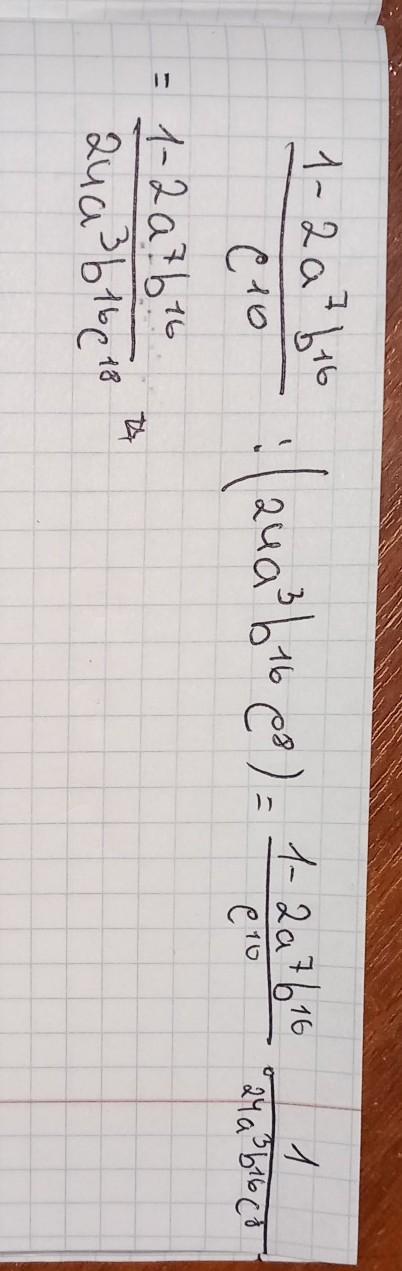 1-2a⁷b¹⁶/c¹⁰ : (24a³b¹⁶c⁸) = 1-2a⁷b¹⁶/c¹⁰ · 1/24a³b¹⁶c⁸
= 1-2a⁷b¹⁶/24a³b¹⁶c¹⁸